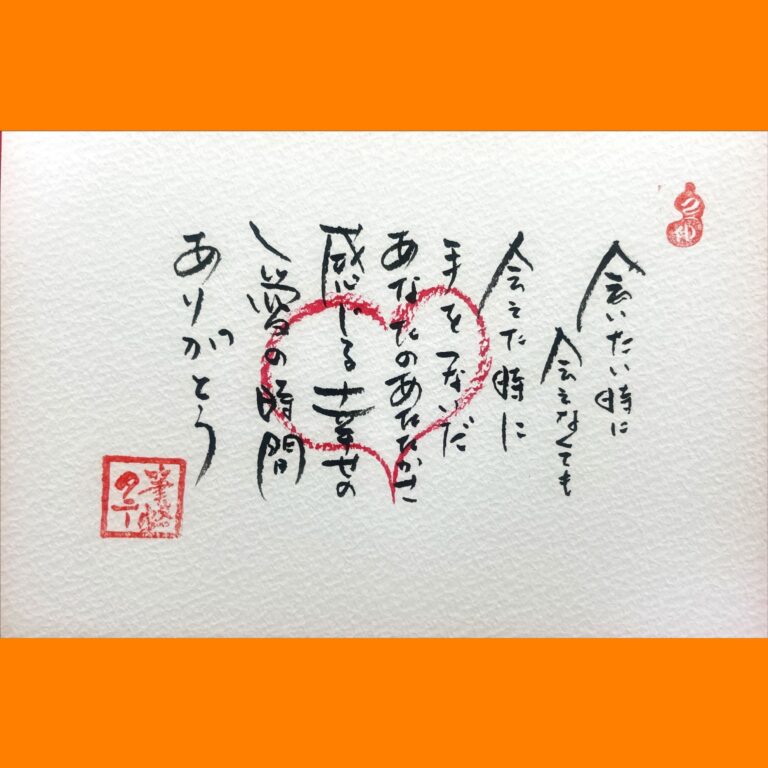 会いたい時に
会えなくても
会えた時に
手をつないだ
あなたのあたたかさ
感じる幸せの
愛の時間
ありがとう